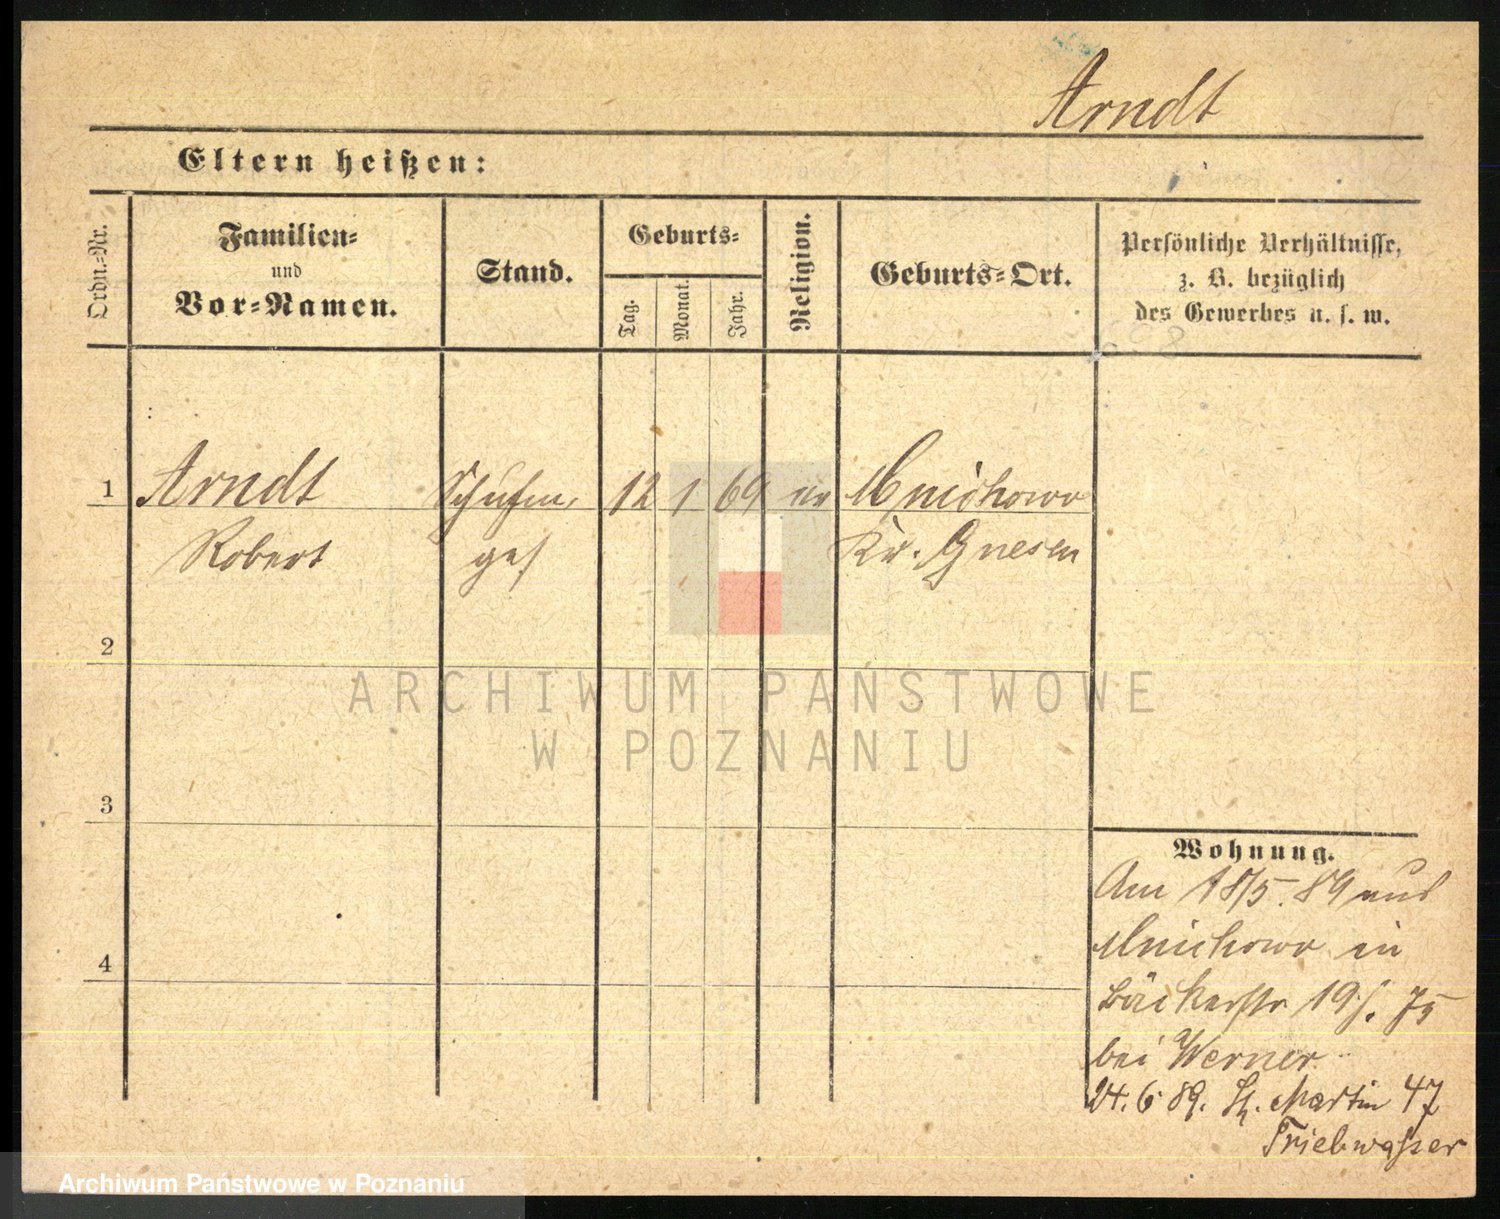 Arndt
Eltern heißen:
Ordn.-Nr.
Familien-
und
Vor-Namen.
Stand.
Geburts-
Tag.
Monat.
Jahr.
Religion.
Geburts-Ort.
Persönliche Verhältnisse,
z. B. bezüglich
des Gewerbes u. s. w.
1 Arndt Schuhm. 12 1 69 ev Mnichowo
Robert ges Kr. Gnesen
2
3
4
Wohnung.
Am 18/5. 89 aus
Mnichowo in
Bäckerstr 19
bei Werner
24. 6 89. St. Martin 47
Triebwasser
ARCHIWUM PAŃSTWOWE
W POZNANIU
Archiwum Państwowe w Poznaniu